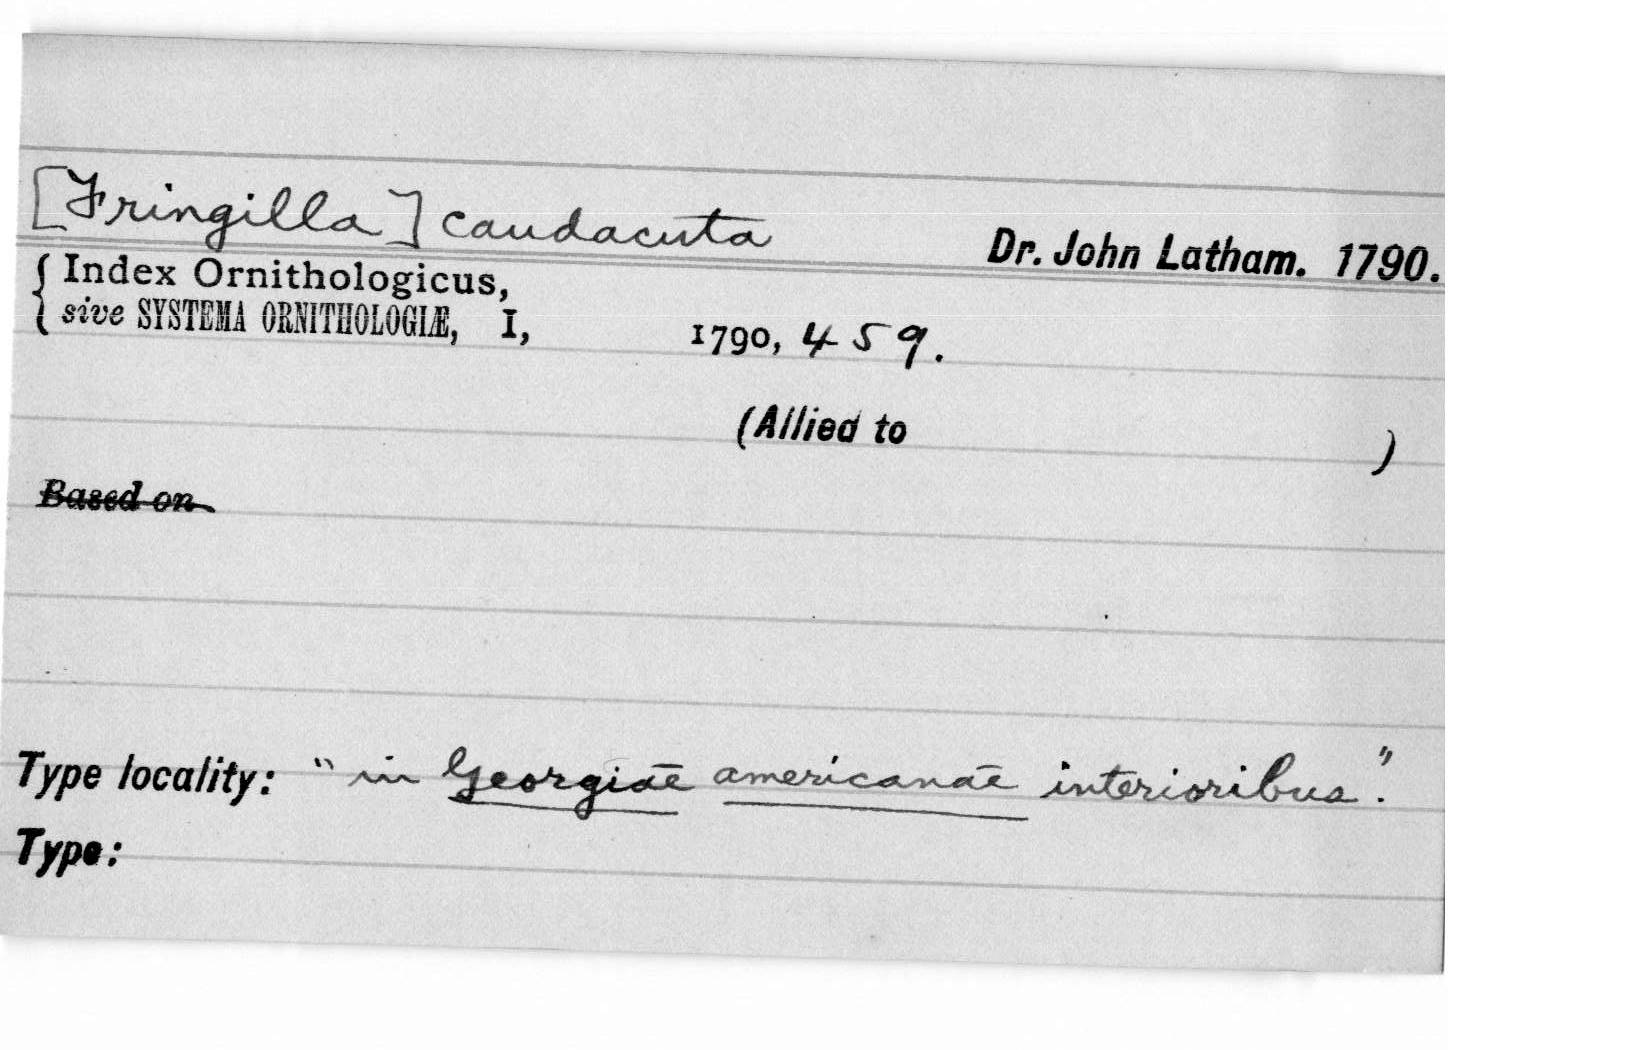 [Fringilla] caudacuta
Dr. John Latham. 1790.
{ Index Ornithologicus,
sive SYSTEMA ORNITHOLOGIÆ, I, 1790, 459.
(Allied to )
Based on
Type locality: "in Georgiae americanae interioribus."
Type: